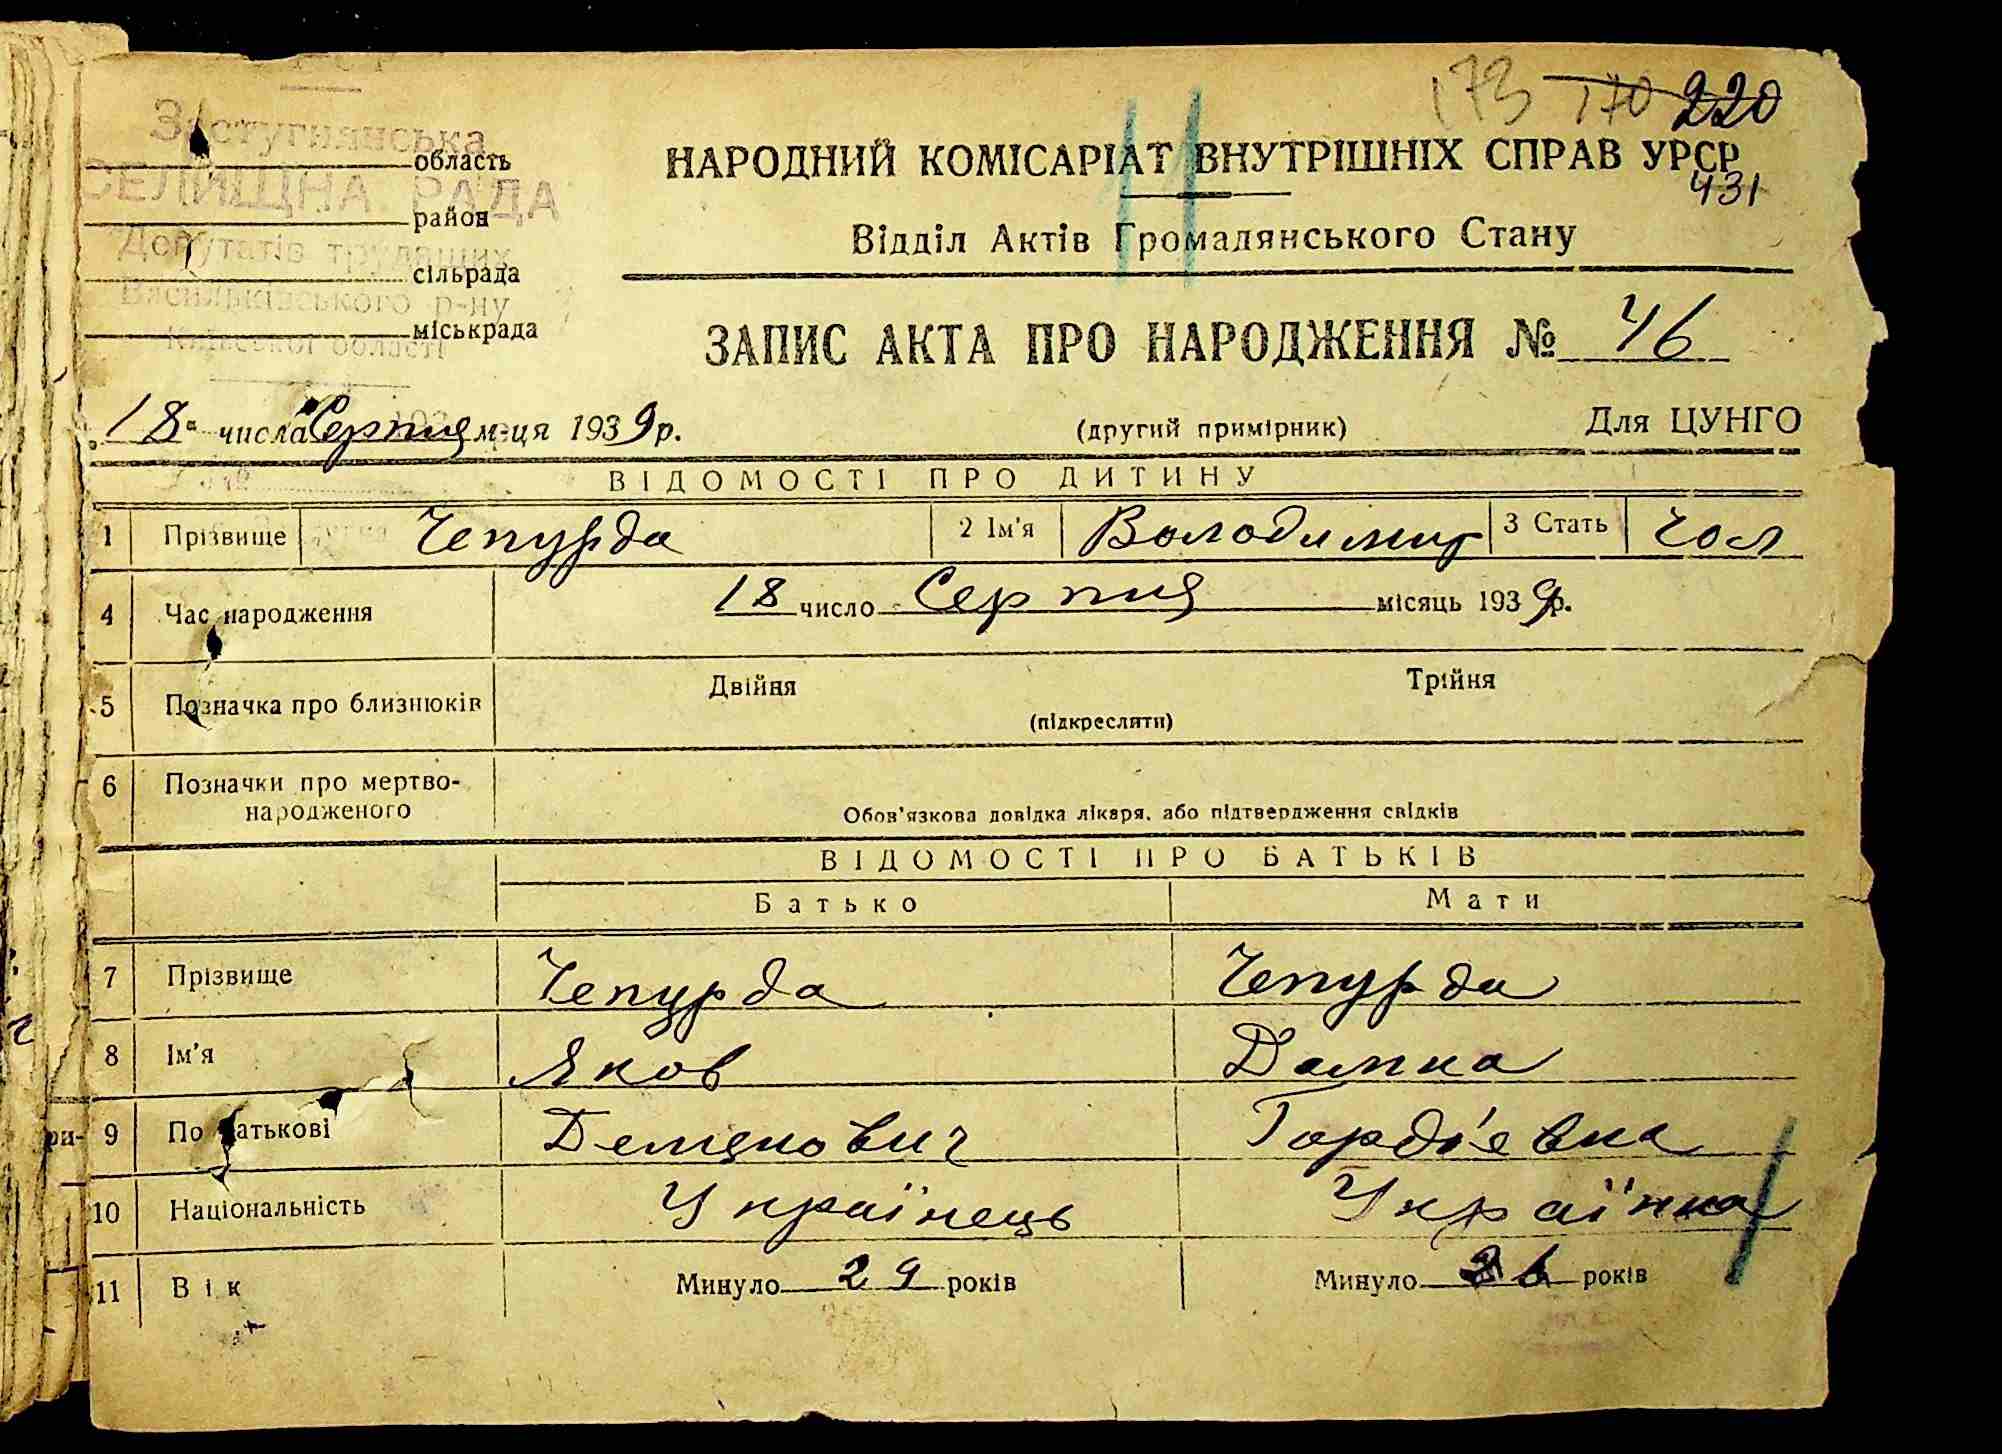 173 170 220
Застугнянська
область
НАРОДНИЙ КОМІСАРІАТ ВНУТРІШНІХ СПРАВ УРСР
431
СЕЛИЩНА РАДА
район
Відділ Актів Громадянського Стану
Депутатів трудящих
сільрада
Васильківського р-ну
міськрада
Київської області
ЗАПИС АКТА ПРО НАРОДЖЕННЯ № 46
18 числа Серпня м-ця 1939 р. (другий примірник) Для ЦУНГО
ВІДОМОСТІ ПРО ДИТИНУ
1 Прізвище Чепурда 2 Ім'я Володимир 3 Стать чол
4 Час народження 18 число Серпня місяць 1939 р.
5 Позначка про близнюків Двійня Трійня
(підкреслити)
6 Позначки про мертво-
народженого Обов'язкова довідка лікаря, або підтвердження свідків
ВІДОМОСТІ ПРО БАТЬКІВ
Батько Мати
7 Прізвище Чепурда Чепурда
8 Ім'я Яков Домка
9 По батькові Демянович Гордієвна
10 Національність Українець Українка
11 Вік Минуло 29 років Минуло 26 років